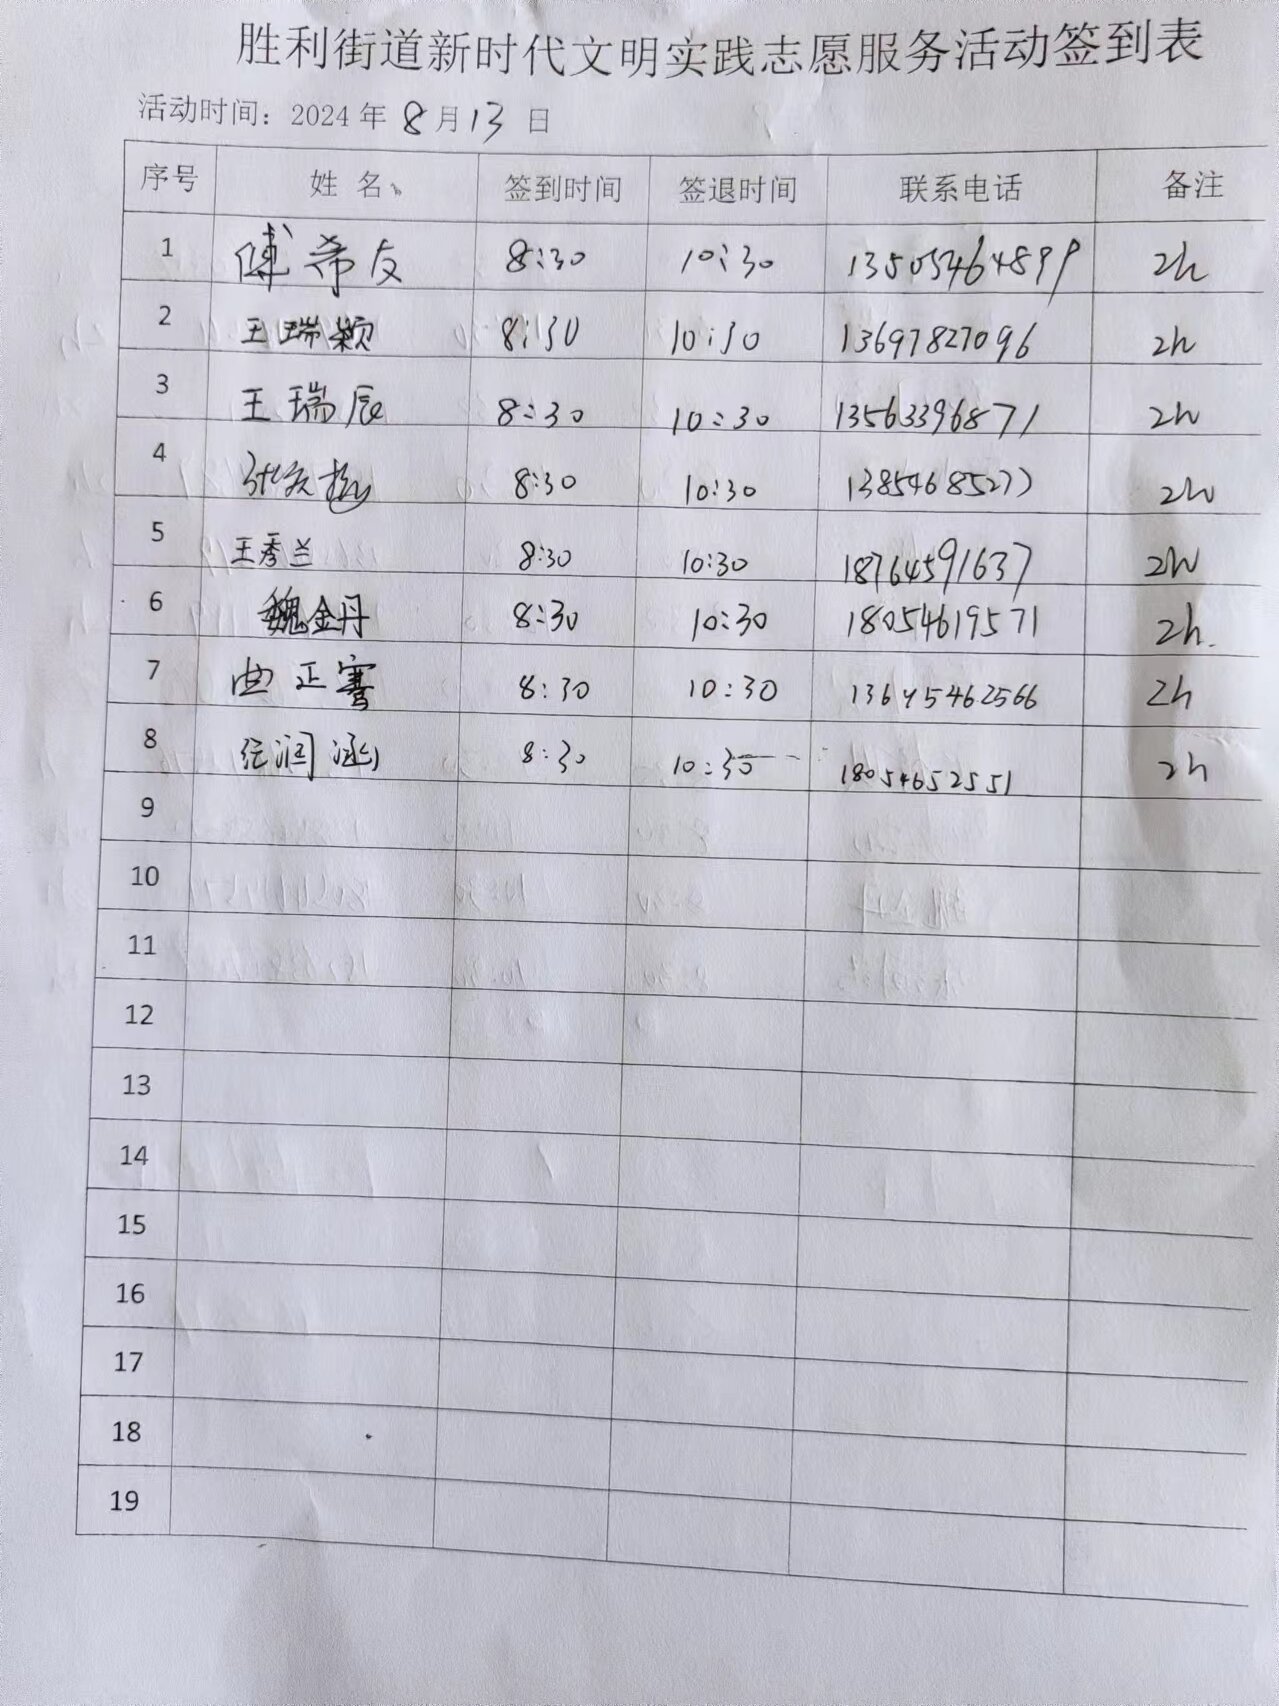 胜利街道新时代文明实践志愿服务活动签到表
活动时间：2024年 8月13 日
序号 姓 名 签到时间 签退时间 联系电话 备注
1 傅希友 8:30 10:30 13505464899 2h
2 王瑞颖 8:30 10:30 13697827096 2h
3 王瑞辰 8:30 10:30 13563396871 2h
4 8:30 10:30 13854685277 2h
5 王秀兰 8:30 10:30 18764591637 2h
6 魏金丹 8:30 10:30 18054619571 2h.
7 曲正 8:30 10:30 2h
8 张润涵 8:30 10:30 18054652551 2h
9
10
11
12
13
14
15
16
17
18
19